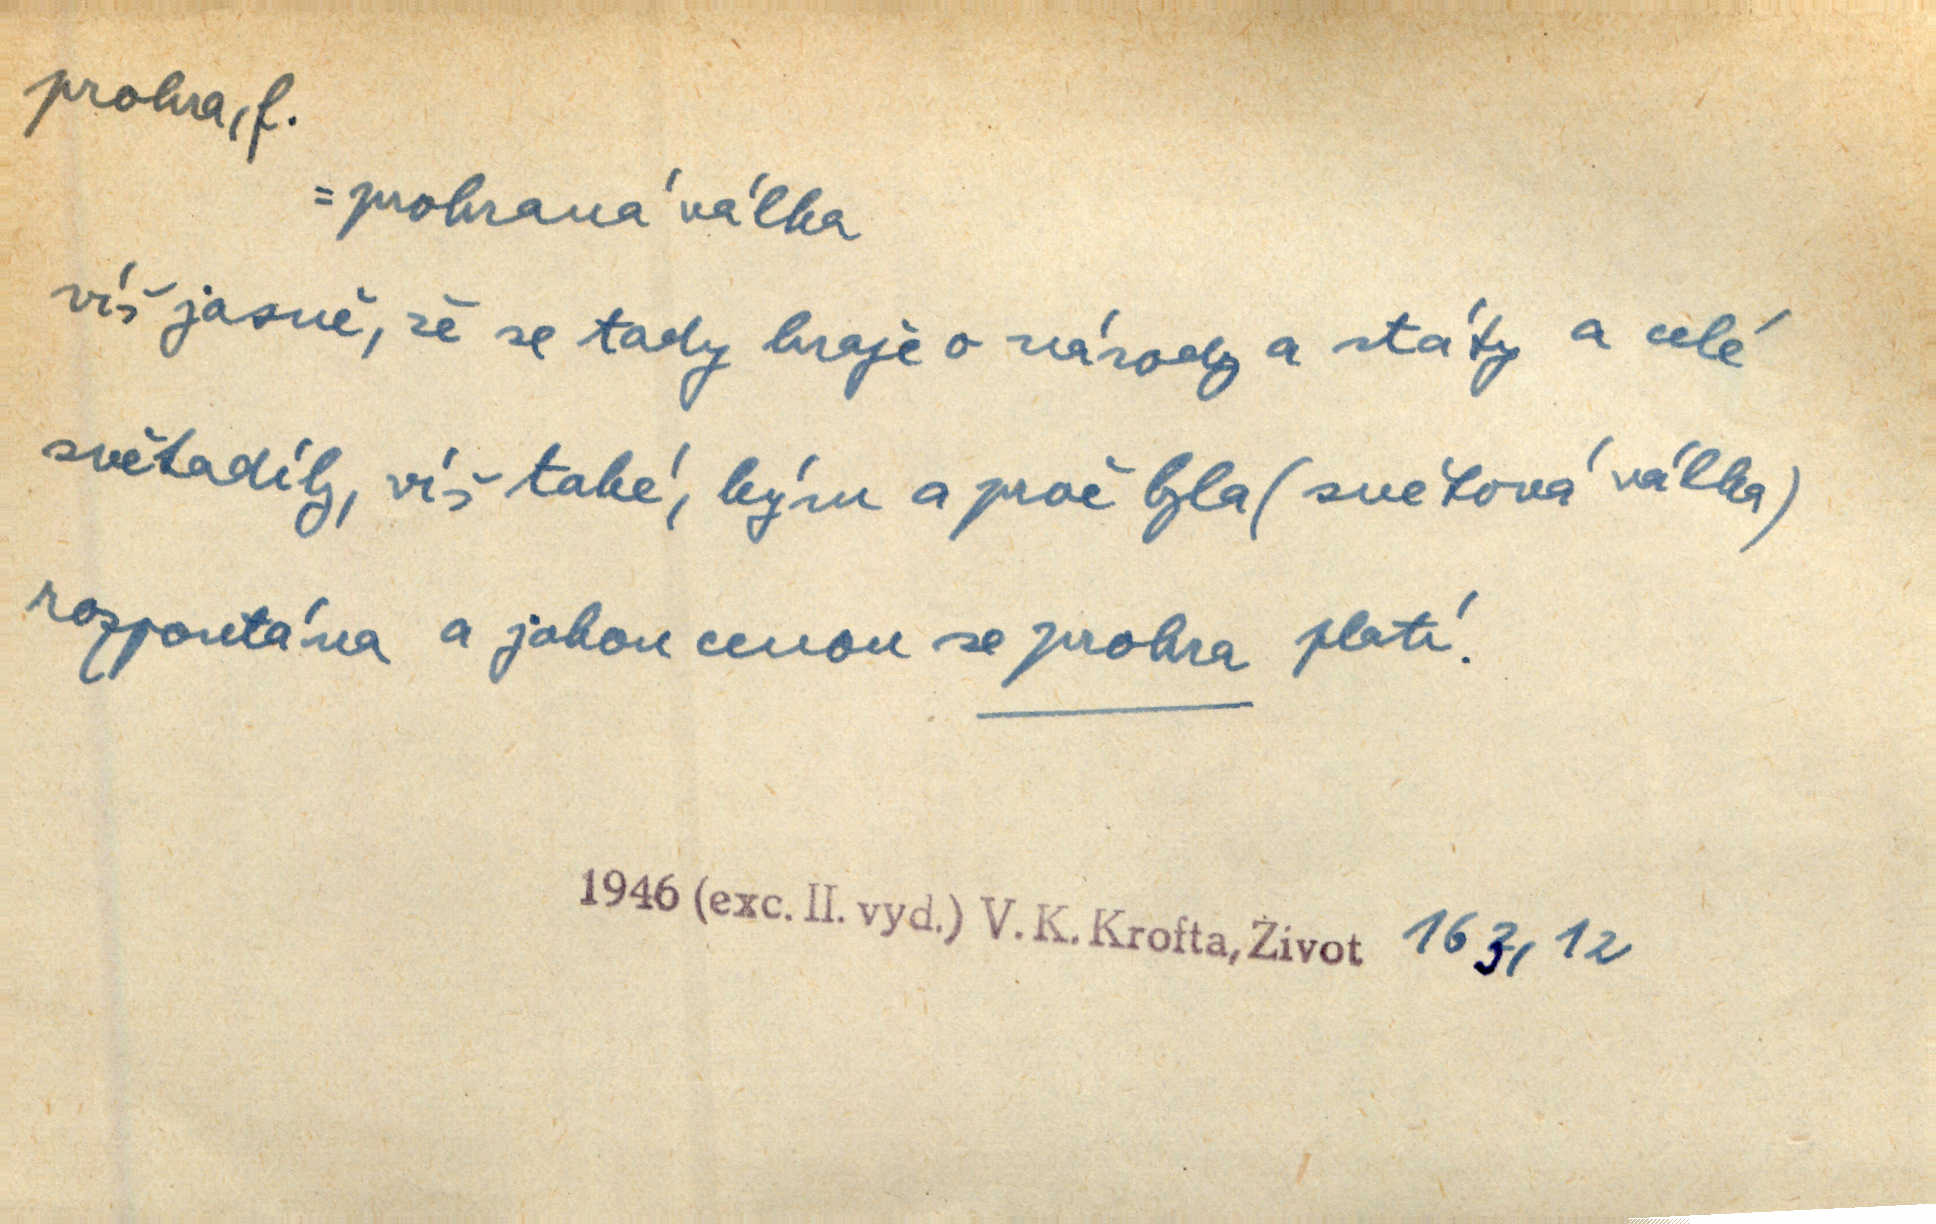 prohra, f.
= prohraná válka
víš jasně, že se tady hraje o národy a státy a celé
světadíly, víš také, kým a proč byla (světová válka)
rozpoutána a jakou cenou se prohra platí.
1946 (exc. II. vyd.) V. K. Krofta, Život 163, 12